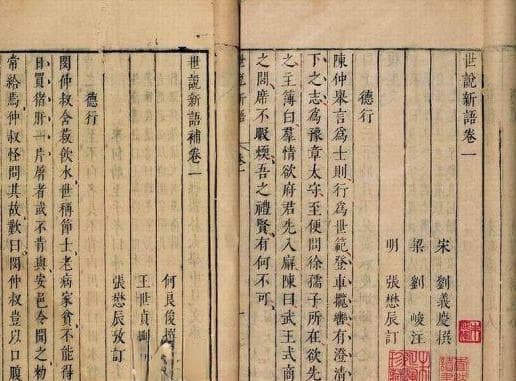 世說新語卷一
宋 劉義慶撰
梁 劉峻注
明 張懋辰訂
德行
陳仲舉言為士則行為世範登車攬轡有澄清
下之志為豫章太守至便問徐孺子所在欲先
之主簿曰羣情欲府君先入廨陳曰武王式商
之閭席不暇煖吾之禮賢有何不可
世說新語 卷一
世說新語補卷一
何良俊撰
王世貞刪
張懋辰攷訂
德行
閔仲叔舍菽飲水世稱節士老病家貧不能得
日買猪肝一片屠者或不肯與安邑令聞之勑
常給焉仲叔怪問其故歎曰閔仲叔豈以口腹